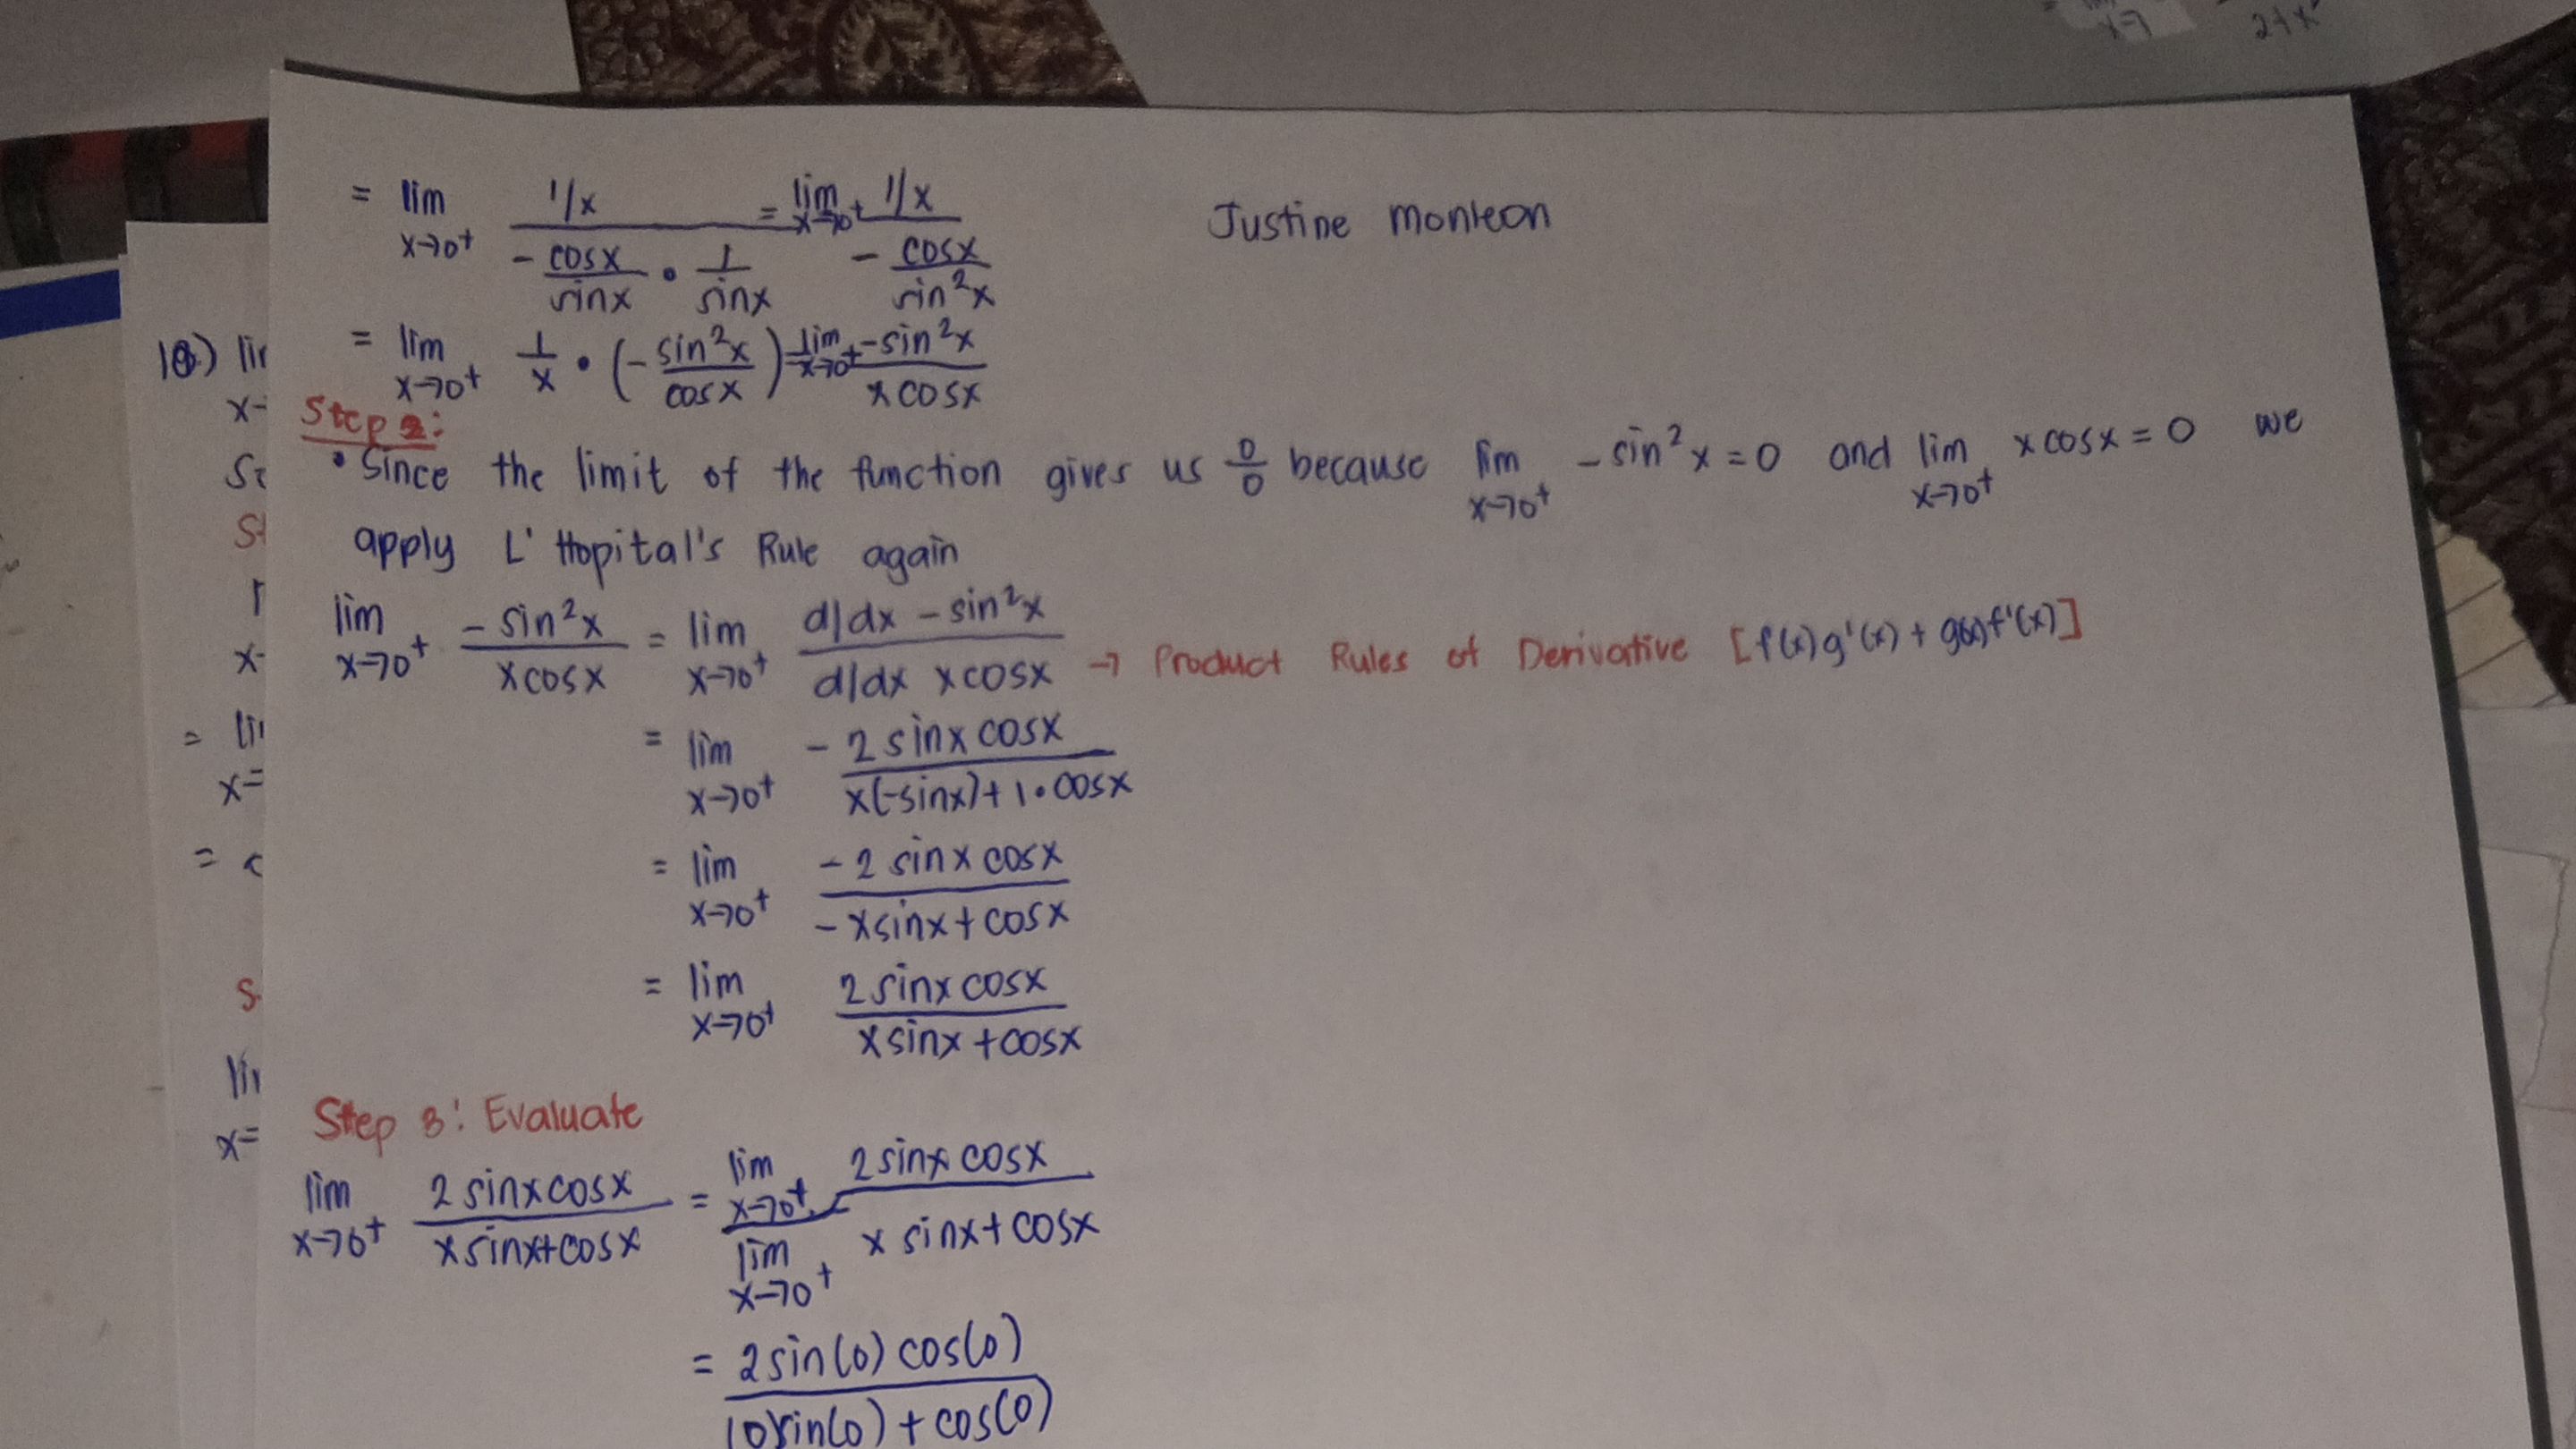 = lim x→0⁺ (1/x)/(- cosx/sinx • 1/sinx) = lim x→0⁺ (1/x)/(- cosx/sin²x)
Justine Monteon
= lim x→0⁺ 1/x • (- sin²x/cosx) = lim x→0⁺ -sin²x/xcosx
Step 2:
• Since the limit of the function gives us 0/0 because lim x→0⁺ -sin²x = 0 and lim x→0⁺ xcosx = 0 we
apply L'Hopital's Rule again
lim x→0⁺ -sin²x/xcosx = lim x→0⁺ (d/dx -sin²x)/(d/dx xcosx) → Product Rules of Derivative [f(x)g'(x) + g(x)f'(x)]
= lim x→0⁺ - 2sinxcosx/(x(-sinx)+1•cosx)
= lim x→0⁺ -2sinxcosx/(-xsinx+cosx)
= lim x→0⁺ 2sinxcosx/(xsinx+cosx)
Step 3: Evaluate
lim x→0⁺ 2sinxcosx/(xsinx+cosx) = (lim x→0⁺ 2sinxcosx)/(lim x→0⁺ xsinx+cosx)
= 2sin(0)cos(0)/((0)sin(0)+cos(0))